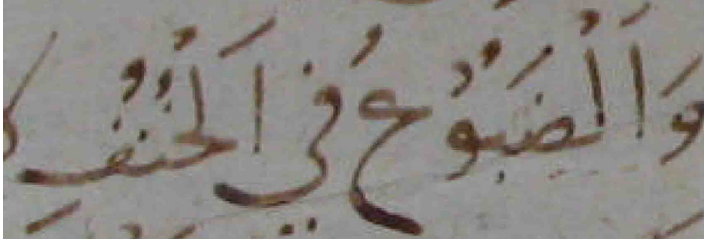 وَاَلْضَبُوْعُ فِي اَلْخُنُفِ